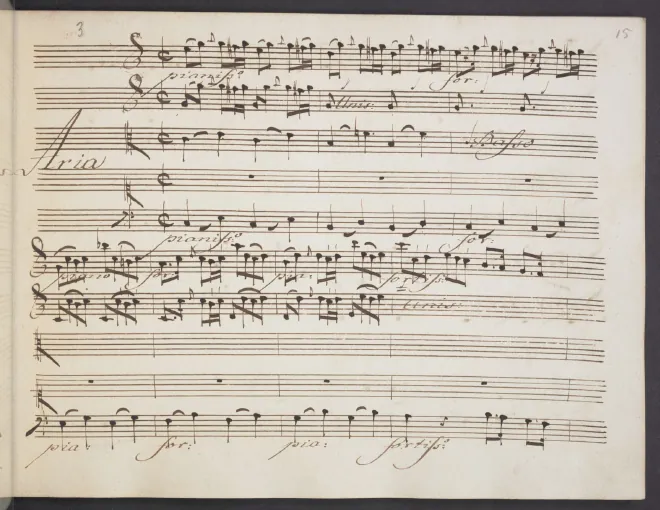 3 15
pianiss:o for:
Unis:
Aria
Basso
pianiss:o for:
piano for: pia: fortiss:o
Unis:
pia: for: pia: fortiss:o